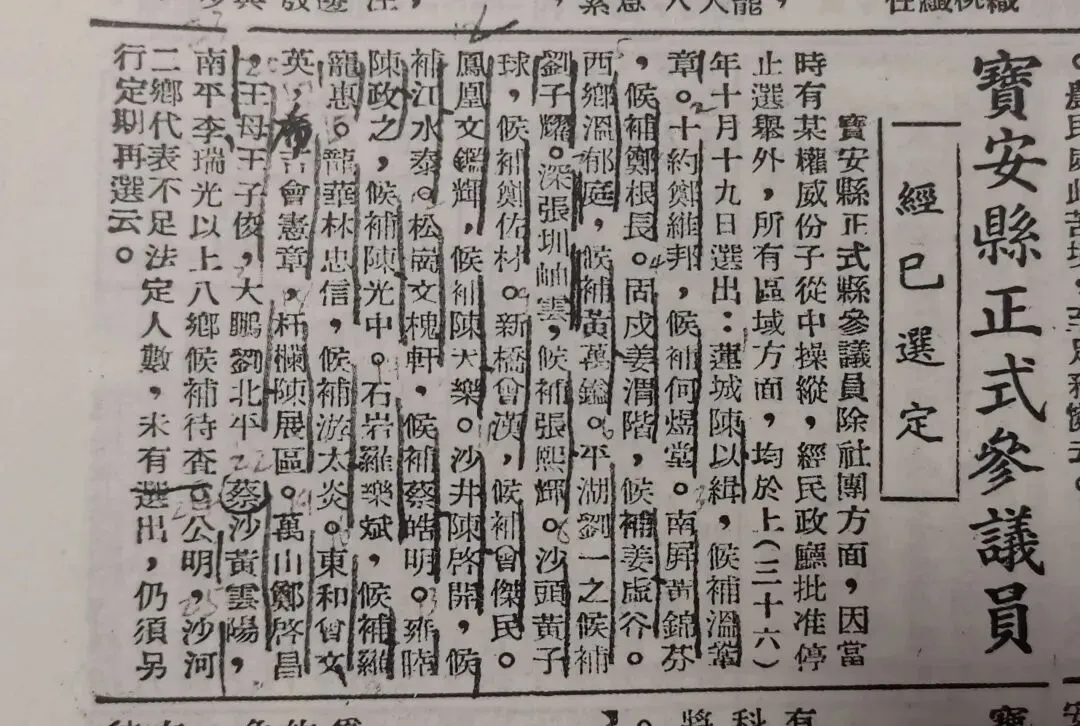 寶安縣正式參議員
經已選定
寶安縣正式縣參議員除社團方面，因當
時有某權威份子從中操縱，經民政廳批准停
止選舉外，所有區域方面，均於上（三十六）
年十月十九日選出：蓮城陳以緝，候補溫葦
章。十約鄭維邦，候補何煜堂。南屏黃錦芬
，候補鄭根長。固戍姜渭階，候補姜虛谷。
西鄉溫郁庭，候補黃萬鎰。平湖劉一之候補
劉子耀。深張圳岫雲，候補張熙輝。沙頭黃子
球，候補鄭佐材。新橋曾漢，候補曾傑民。
鳳凰文鑑輝，候補陳大樂。沙井陳啓開，候
補江水泰。松崗文槐軒，候補蔡皓明。雍睦
陳政之，候補陳光中。石岩羅樂斌，候補羅
寵惠。龍華林忠信，候補游太炎。東和曾文
英，布吉會憲章，杆欄陳展區。萬山鄭啓昌
，王母王子俊，大鵬劉北平 蔡沙黃雲陽，
南平李瑞光以上八鄉候補待查。公明，沙河
二鄉代表不足法定人數，未有選出，仍須另
行定期再選云。